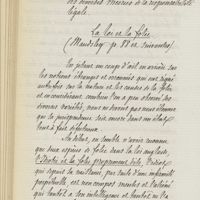 des diverses mesures de la responsabilité
légale.
La loi et la folie
(Maudsley p. 88 et suivantes)
En jetant un coup d'œil en arrière sur
les notions étranges et erronées qui ont régné
autrefois sur la nature et les causes de la folie
et en considérant combien l'on a peu observé ses
diverses variétés, nous ne devons pas nous étonner
que la jurisprudence soit encore dans un état
tout à fait défectueux.
Le début, on semble n'avoir reconnu
que deux espèces de folie dans la loi anglaise:
l'Idiotie et la folie proprement dite. L'idiot,
qui depuis sa naissance, par suite d'une infirmité
perpétuelle, est non compos mentis et l'aliéné
qui tantôt a son intelligence et tantôt ne l'a